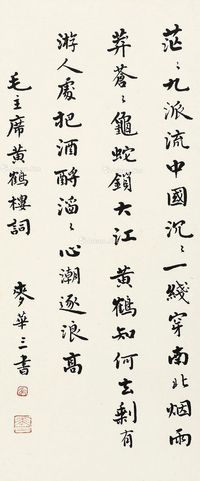 茫〻九派流中國沉〻一綫穿南北烟雨
莽蒼〻龜蛇鎖大江黃鶴知何去剩有
游人處把酒酹滔〻心潮逐浪高
毛主席黃鶴樓詞 麥華三書